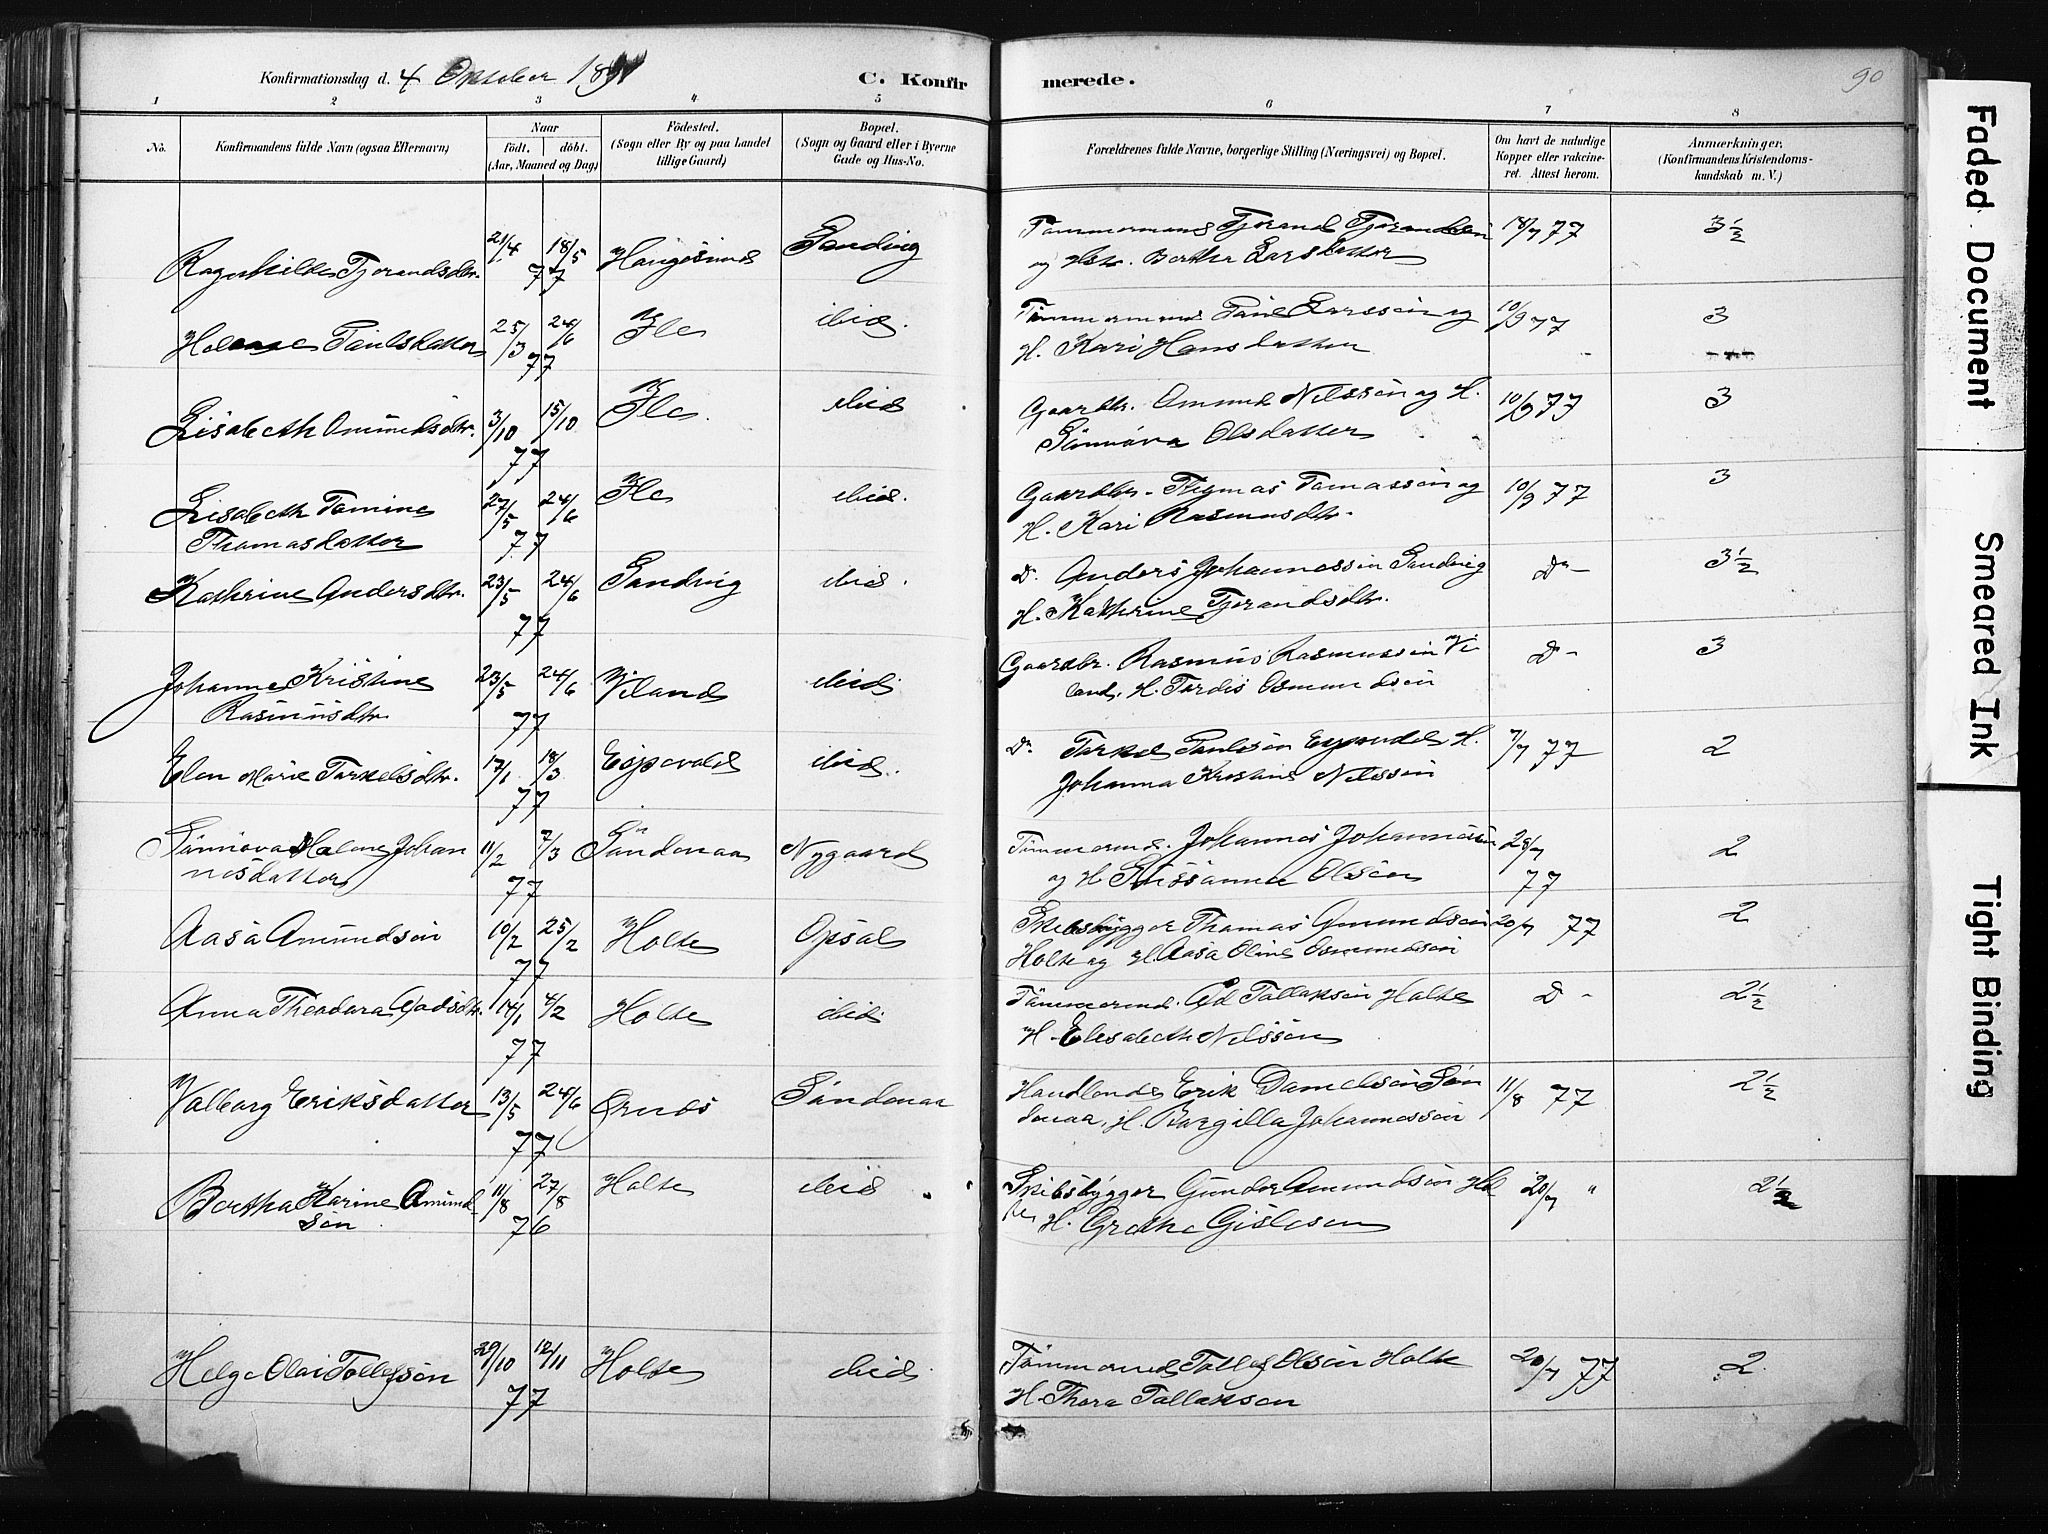 Konfirmationsdag d. 4 October 1891
C. Konfirmerede.
90
1 2 3 4 5 6 7 8
No.
Konfirmandens fulde Navn (ogsaa Efternavn)
Naar
födt. döbt.
(Aar, Maaned og Dag)
Födested.
(Sogn eller By og paa Landet
tillige Gaard)
Bopæl.
(Sogn og Gaard eller i Byerne
Gade og Hus-No.
Forældrenes fulde Navne, borgerlige Stilling (Næringsvei) og Bopæl.
Om havt de naturlige
Kopper eller vakcine-
ret. Attest herom.
Anmærkninger.
(Konfirmandens Kristendoms-
kundskab m. V.)
Ragnhilde Tjorandsdtr. 21/4 18/5 77 Haugesund Sandvig Tømmermand Tjorand
og Hstr. Berthe Larsdatter 18/7 77 3 1/2
Paulsdatter 25/3 24/6 77 Ile ibid. Larssøn og
H. Kari Hansdatter 10/9 77 3
Lisabeth Omundsdtr. 3/10 15/10 77 Ile ibid Gaardbr. Omund Nilssøn og H.
Sønnøva Olsdatter 10/9 77 3
Lisabeth Tomine
Thomasdatter 27/5 24/6 77 Ile ibid. Gaardbr. Tomassøn og
H. Kari Rasmusdtr. 10/9 77 3
Kathrine Andersdtr. 23/5 24/6 77 Sandvig ibid. Do. Anders Johannessøn Sandvig
H. Kathrine Tjorandsdtr. Do - 3 1/2
Johanne Kristine
Rasmusdtr. 23/5 24/6 77 Viland ibid Gaardbr. Rasmus Rasmussøn Vi
land, H. Tordis Osmundsøn Do - 3
Elen Marie Torkelsdtr. 17/1 18/3 77 ibid. Do. Torkel Paulsøn H.
Johanna Kristine Nilssøn 7/7 77 2
Sønnøva Helene Johan
nesdatter 11/2 7/3 77 Søndenaa Nygaard Tømmermd. Johannes Johannessøn
og H Sussanna Olsøn 28/7 77 2
Aasa Amundsøn 10/2 25/2 77 Holte Opsal Skibsbygger Thomas Amundsøn
Holte og H. Aasa Oline Osmundsøn 20/7 77 2
Anna Theodora Aadsdtr. 14/1 4/2 77 Holte ibid Tømmermd. Ad Tollaksøn Holte
H. Elesabeth Nilssøn Do - 2 1/2
Valborg Eriksdatter 13/5 24/6 77 Ørnes Søndenaa Handlende Erik Danielsøn Søn
denaa, H. Borgilla Johannessøn 11/8 77 2 1/2
Bertha Karine Amund
søn 11/8 27/8 76 Holte ibid Skibsbygger Gunder Amundsøn Hol
te H. Grethe Gislesen 20/7 " 2 1/2
Helge Olai Tollefsøn 29/10 12/11 77 Holte ibid Tømmermd Tollef Olsøn Holte
H. Thora Tallaksen 20/7 77 2
Faded Document
Smeared Ink
Tight Binding